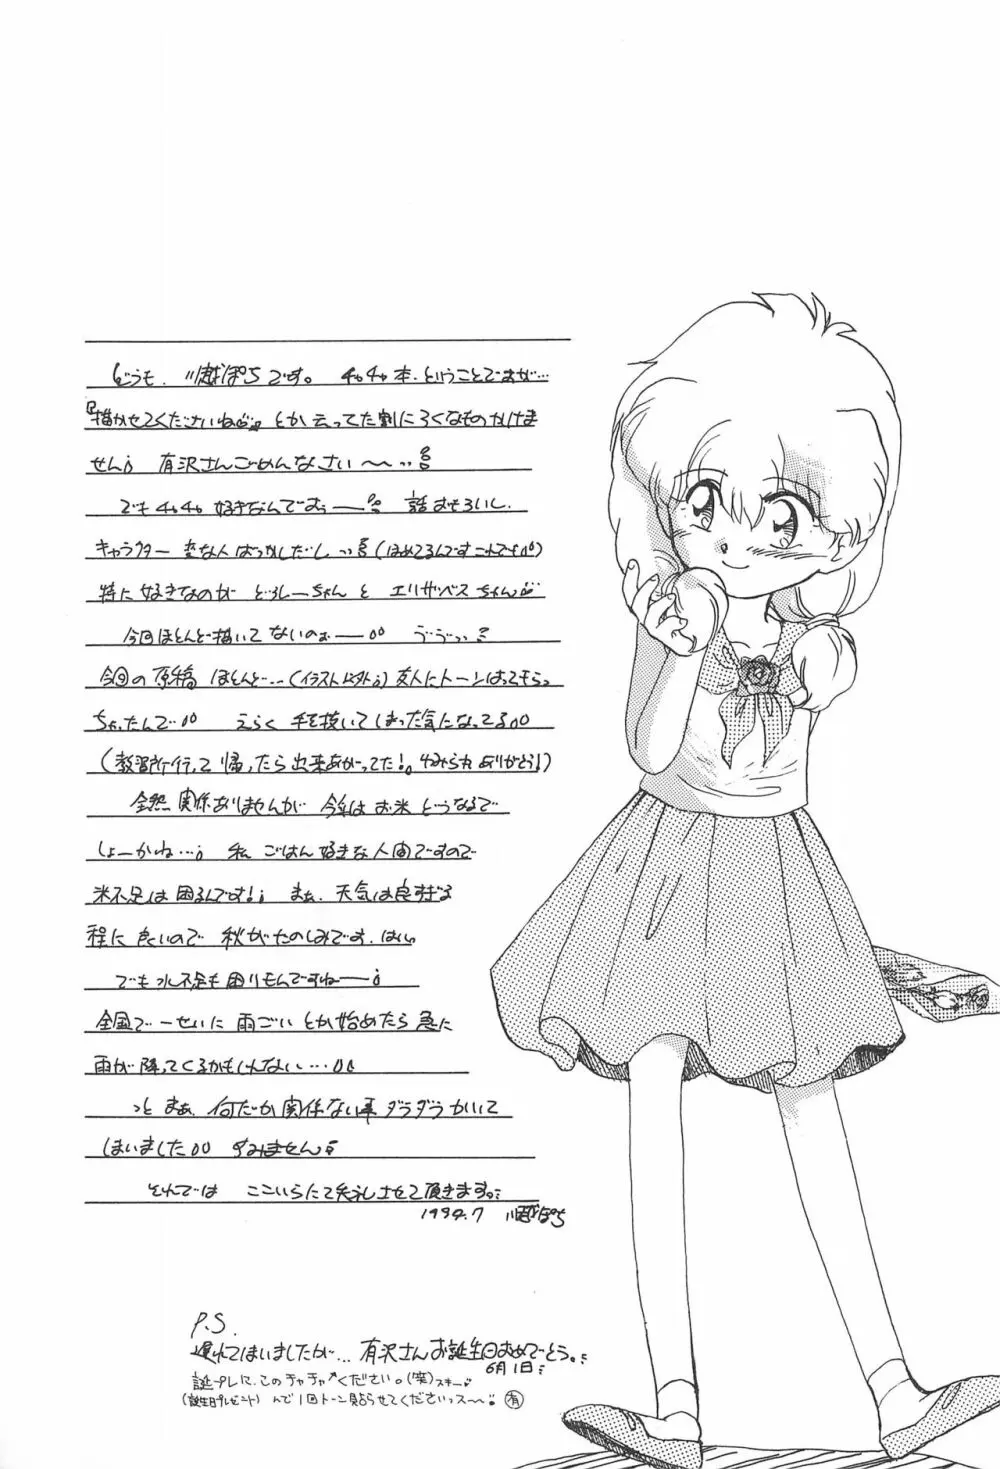 どうも、順ぽちです。チャチャ本、ということですが…
『描かせてくださいね』とか云ってた割にろくなものかけま
せん。有沢さんごめんなさい〜
でもチャチャ好きなんですぅー 話おもろいし、
キャラクター 変な人ばっかしだし (ほめてるんですこれでも)
特に好きなのが どろしーちゃんと エリザベスちゃん
今回ほとんど描いてないのぉー うーうっ
今回の原稿 ほとんど…(イラスト以外) 友人にトーンはってもらっ
ちゃったんで えらく 手を抜いてしまった気になってる
(教習所行って 帰ったら出来あがってた! ありがとう!)
全然関係ありませんが 今年は お米 どうなるで
しょーかね…。私 ごはん好きな人間ですので
米不足は困るんです! まぁ、天気は良すぎる
程に良いので 秋がたのしみです、はい
でも水不足も困りモンですねー
全国で一せいに 雨ごい とか始めたら 急に
雨が降ってくるかもしんない…
っと まぁ、何だか関係ない事 ダラダラ かいて
しまいました すみません
それでは ここいらにて失礼させて頂きます。
1994.7 順ぽち
P.S.
遅れてしまいましたが… 有沢さんお誕生日おめでとう。
6月1日
誕プレに、このチャチャください。(笑)スキー
(誕生日プレゼント) んで1回トーン貼らせてくださいっス〜 有